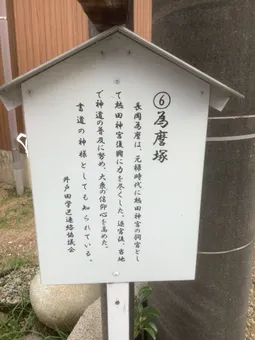 ⑥為麿塚
長岡為麿は、元禄時代に熱田神宮の祠官とし
て熱田神宮復興に力を尽くした。退官後、当地
で神道の普及に努め、大衆の信仰心を高めた。
書道の神様としても知られている。
井戸田学区連絡協議会